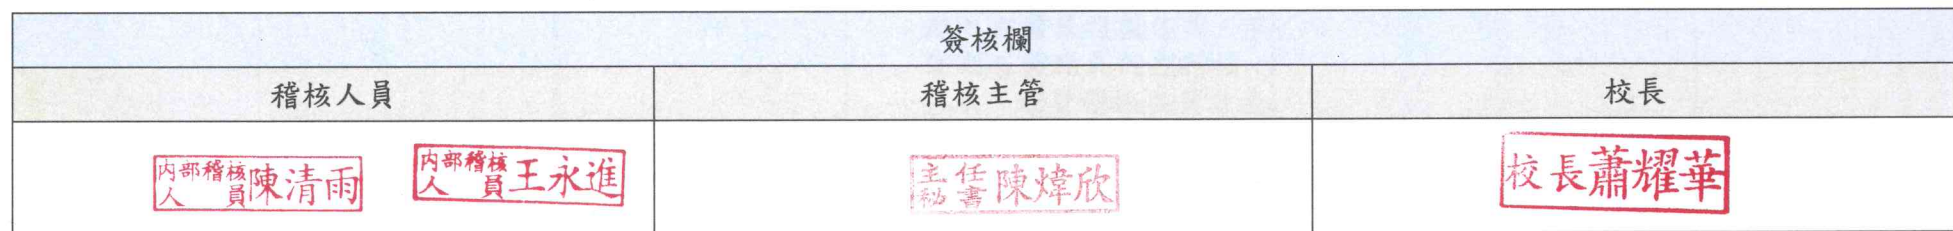 簽核欄
稽核人員 稽核主管 校長
內部稽核人員 陳清雨 內部稽核人員 王永進 主任秘書 陳煒欣 校長 蕭耀華